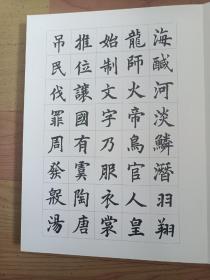 海鹹河淡鱗潛羽翔
龍師火帝鳥官人皇
始制文字乃服衣裳
推位讓國有虞陶唐
吊民伐罪周發殷湯